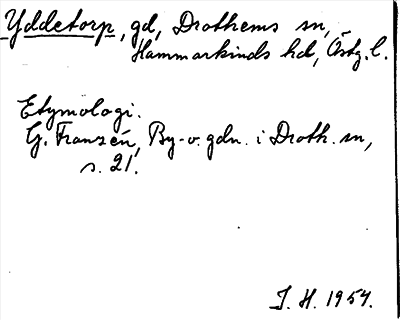 Yddetorp, gd, Drothems sn,
Hammarkinds hd, Östg. l.
Etymologi.
G. Franzén, By- o. gdn. i Droth. sn,
s. 21.
I. H. 1954.